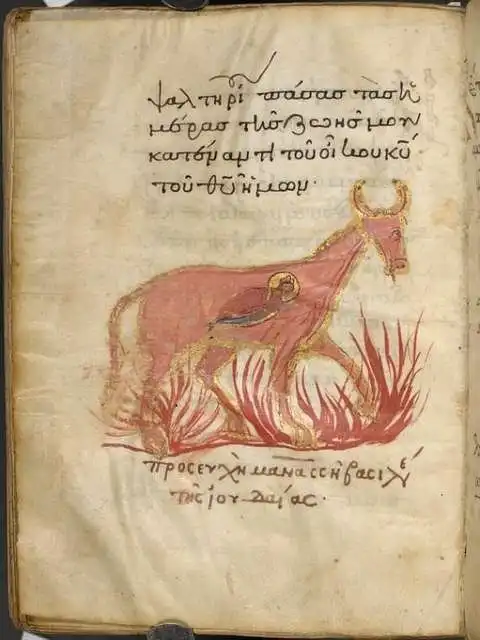 ψαλτηρί πάσασ τὰσ ἡ
μέρασ τῆσ ζωῆσ μου
κατέναντι τοῦ οἴκου κ͞υ
τοῦ θ͞υ ἡμῶν·
προσευχὴ μανασσῆ βασιλέ
τῆς ἰουδαίας·